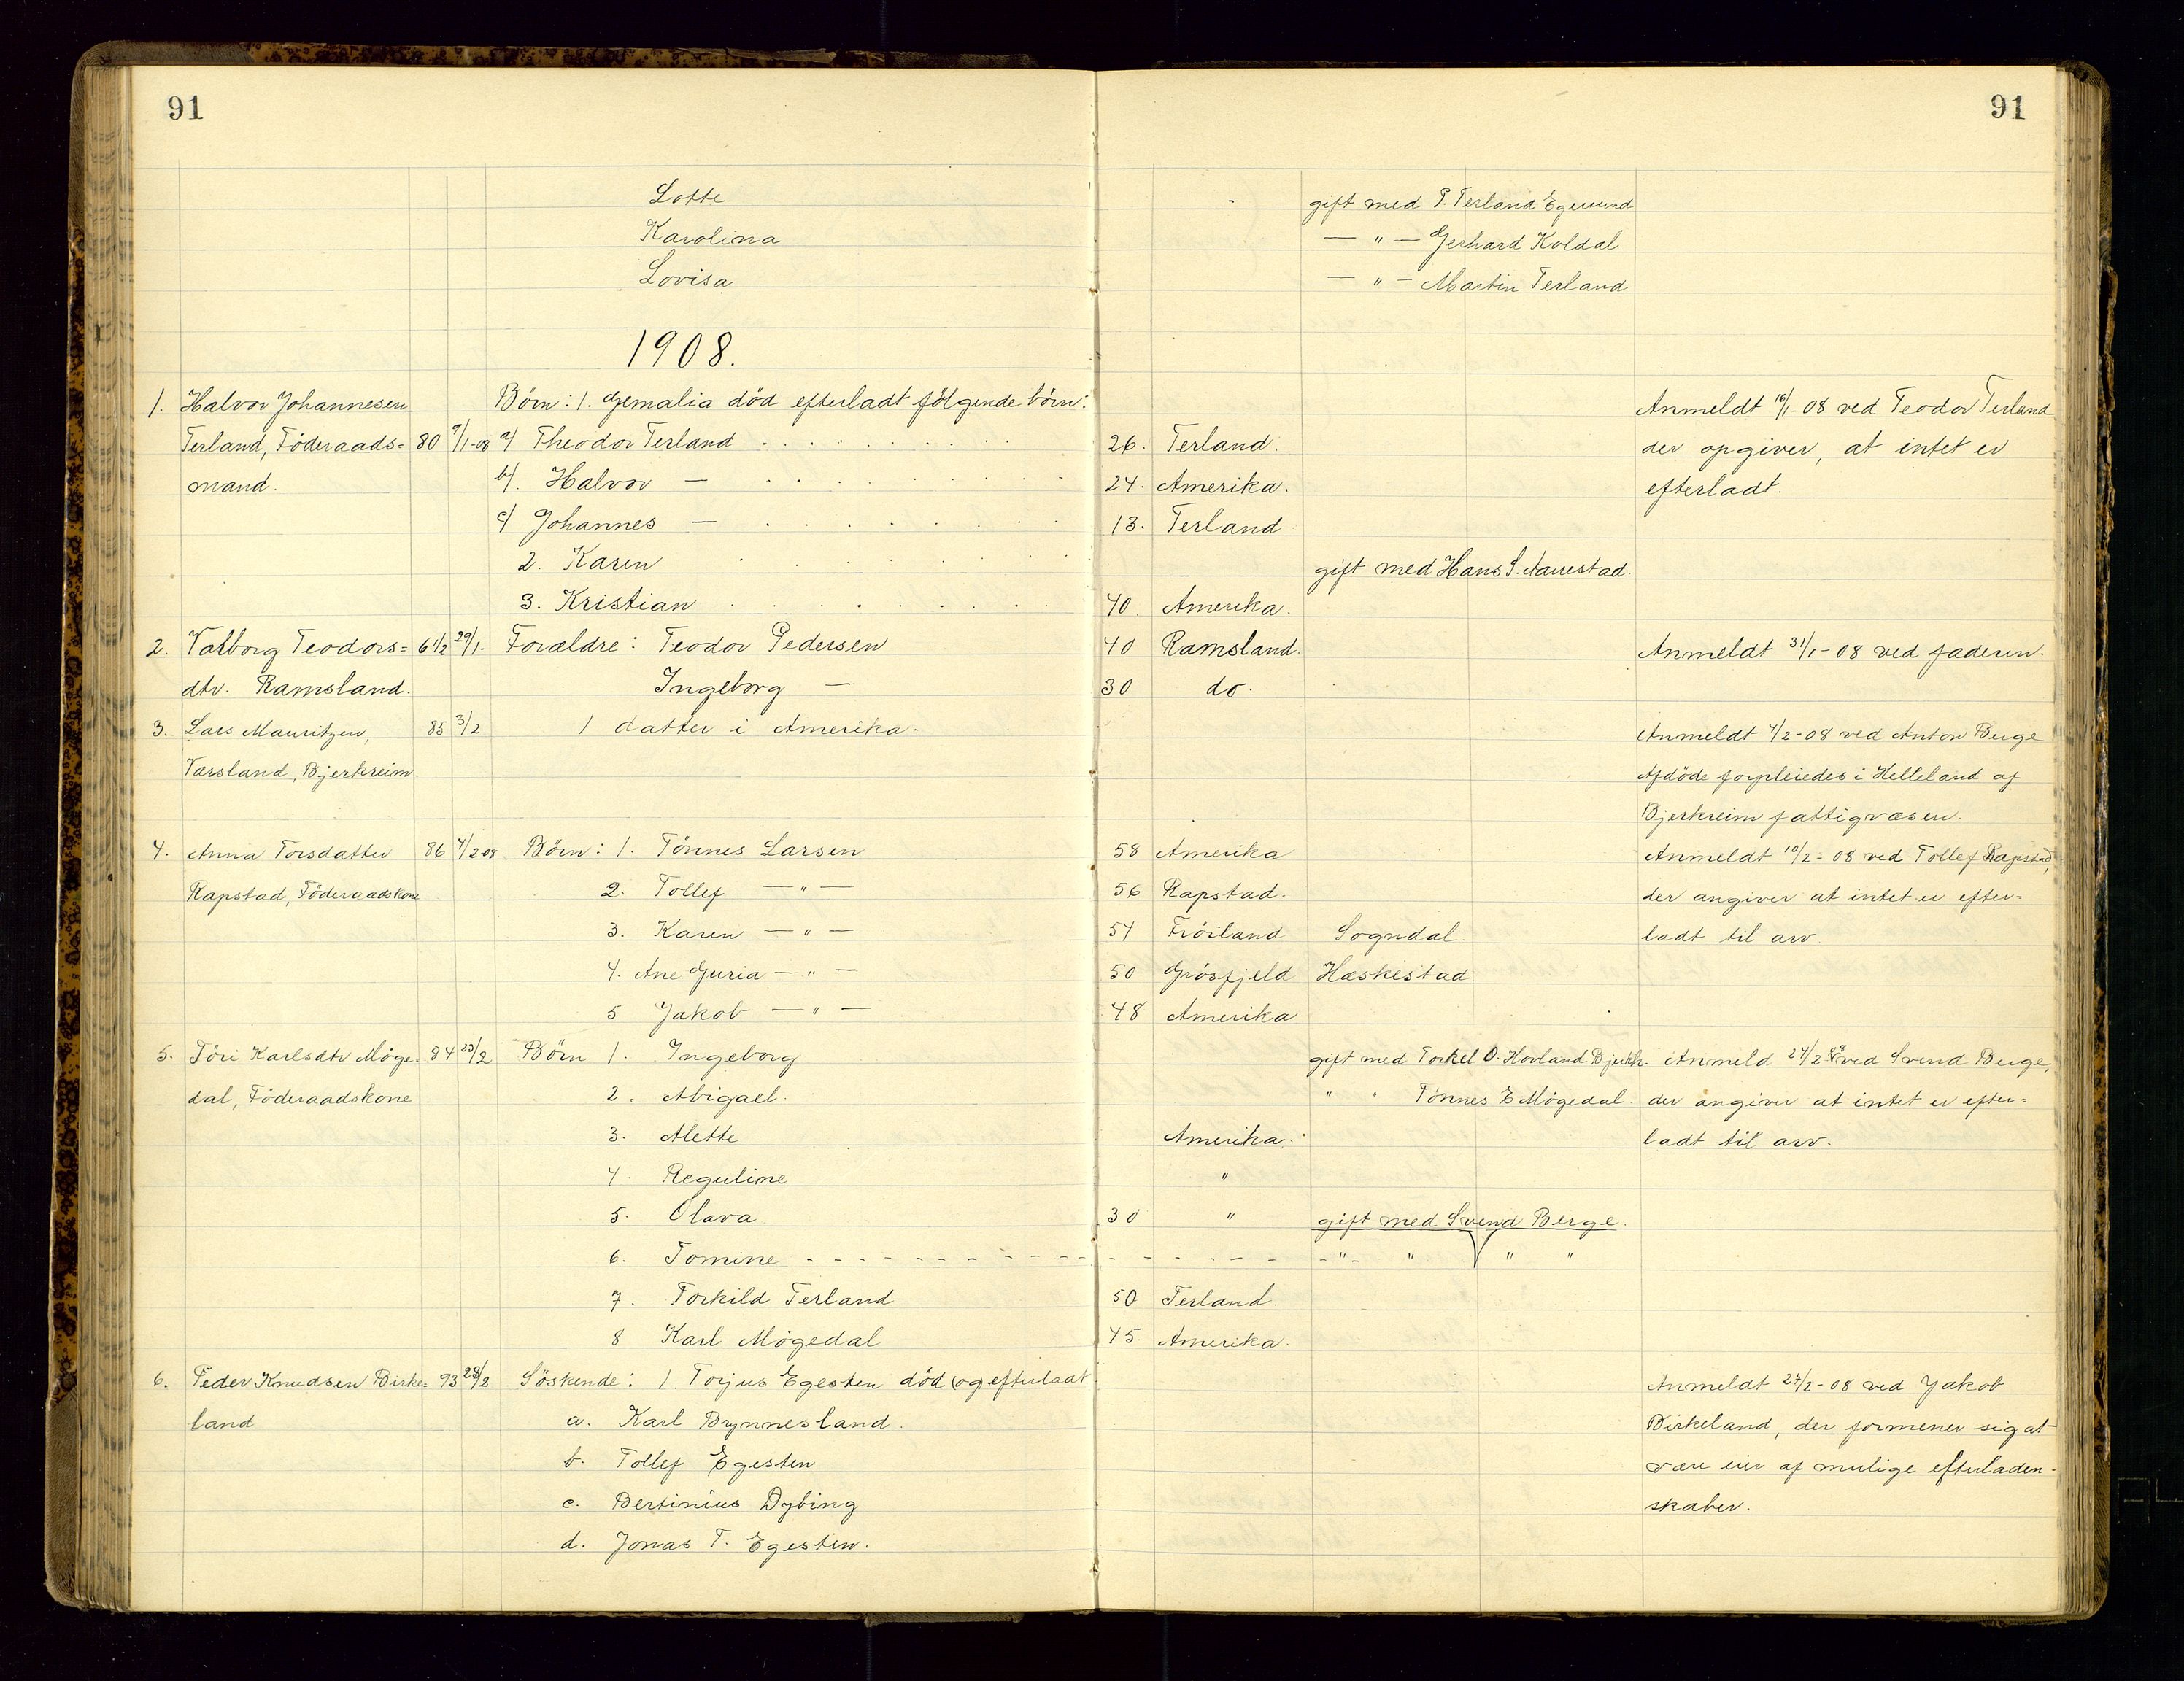 91 91
Lotte - gift med P. Terland Egersund
Karolina — " — Gerhard Koldal
Lovisa — " — Martin Terland
1908.
1. Halvor Johannesen Börn: 1. Gemalia död efterladt fölgende börn: Anmeldt 16/1-08 ved Teodor Terland
Terland, Föderaads= 80 9/1-08 a/ Theodor Terland . . . . . . 26. Terland. der opgiver, at intet er
mand. b/. Halvor — . . . . . . 24. Amerika. efterladt.
c/ Johannes — . . . . . . 13. Terland
2. Karen . . . . . . gift med Hans S. Aarrestad.
3. Kristian . . . . . . 40. Amerika.
2. Valborg Teodors= 6 1/2 29/1- Forældre: Teodor Pedersen 40 Ramsland. Anmeldt 31/1-08 ved faderen.
dtr. Ramsland. Ingeborg — 30 do.
3. Lars Mauritzen, 85 3/2 1 datter i Amerika. Anmeldt 4/2-08 ved Anton Berge
Varsland, Bjerkreim Afdöde forpleiedes i Helleland af
Bjerkreim fattigvæsen.
4. Anna Torsdatter 86 4/2 08 Börn: 1. Tönnes Larsen 58 Amerika Anmeldt 10/2-08 ved Tollef Rapstad,
Rapstad, Föderaadskone 2. Tollef — " — 56 Rapstad. der angiver at intet er efter-
3. Karen — " — 54 Fröiland Sogndal. ladt til arv
4. Ane Guria — " — 50 Grösfjeld Hæskestad
5 Jakob — " — 48 Amerika
5. Töri Karlsdtr Möge= 84 23/2 Börn 1. Ingeborg gift med Torkel O. Hovland Bjerkh. Anmeld 24/2 08 ved Svend Berge,
dal, Föderaadskone 2. Abigael. " " Tönnes E Mögedal. der angiver at intet er efter=
3. Alette Amerika. ladt til arv.
4. Reguline "
5. Olava 30 " gift med Svend Berge.
6. Tomine - - - - - - - - - - " " " "
7. Torkild Terland 50 Terland.
8 Karl Mögedal 45 Amerika.
6. Peder Knudsen Birke= 93 23/2 Söskende: 1 Torjus Egesten död (og) efterladt Anmeldt 27/2-08 ved Jakob
land a. Karl Bynnesland. Birkeland, der formener sig at
b. Tollef Egesten være eier af mulige efterladen-
c. Bertinius Dybing skaber.
d. Jonas T. Egesten.